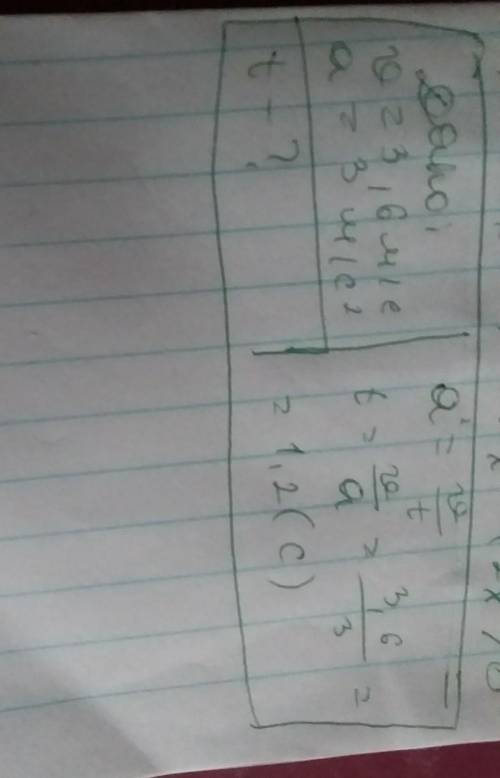 Дано:
v = 3,6 м/с
a = 3 м/с²
t - ?
a = v/t
t = v/a = 3,6/3 =
= 1,2 (с)